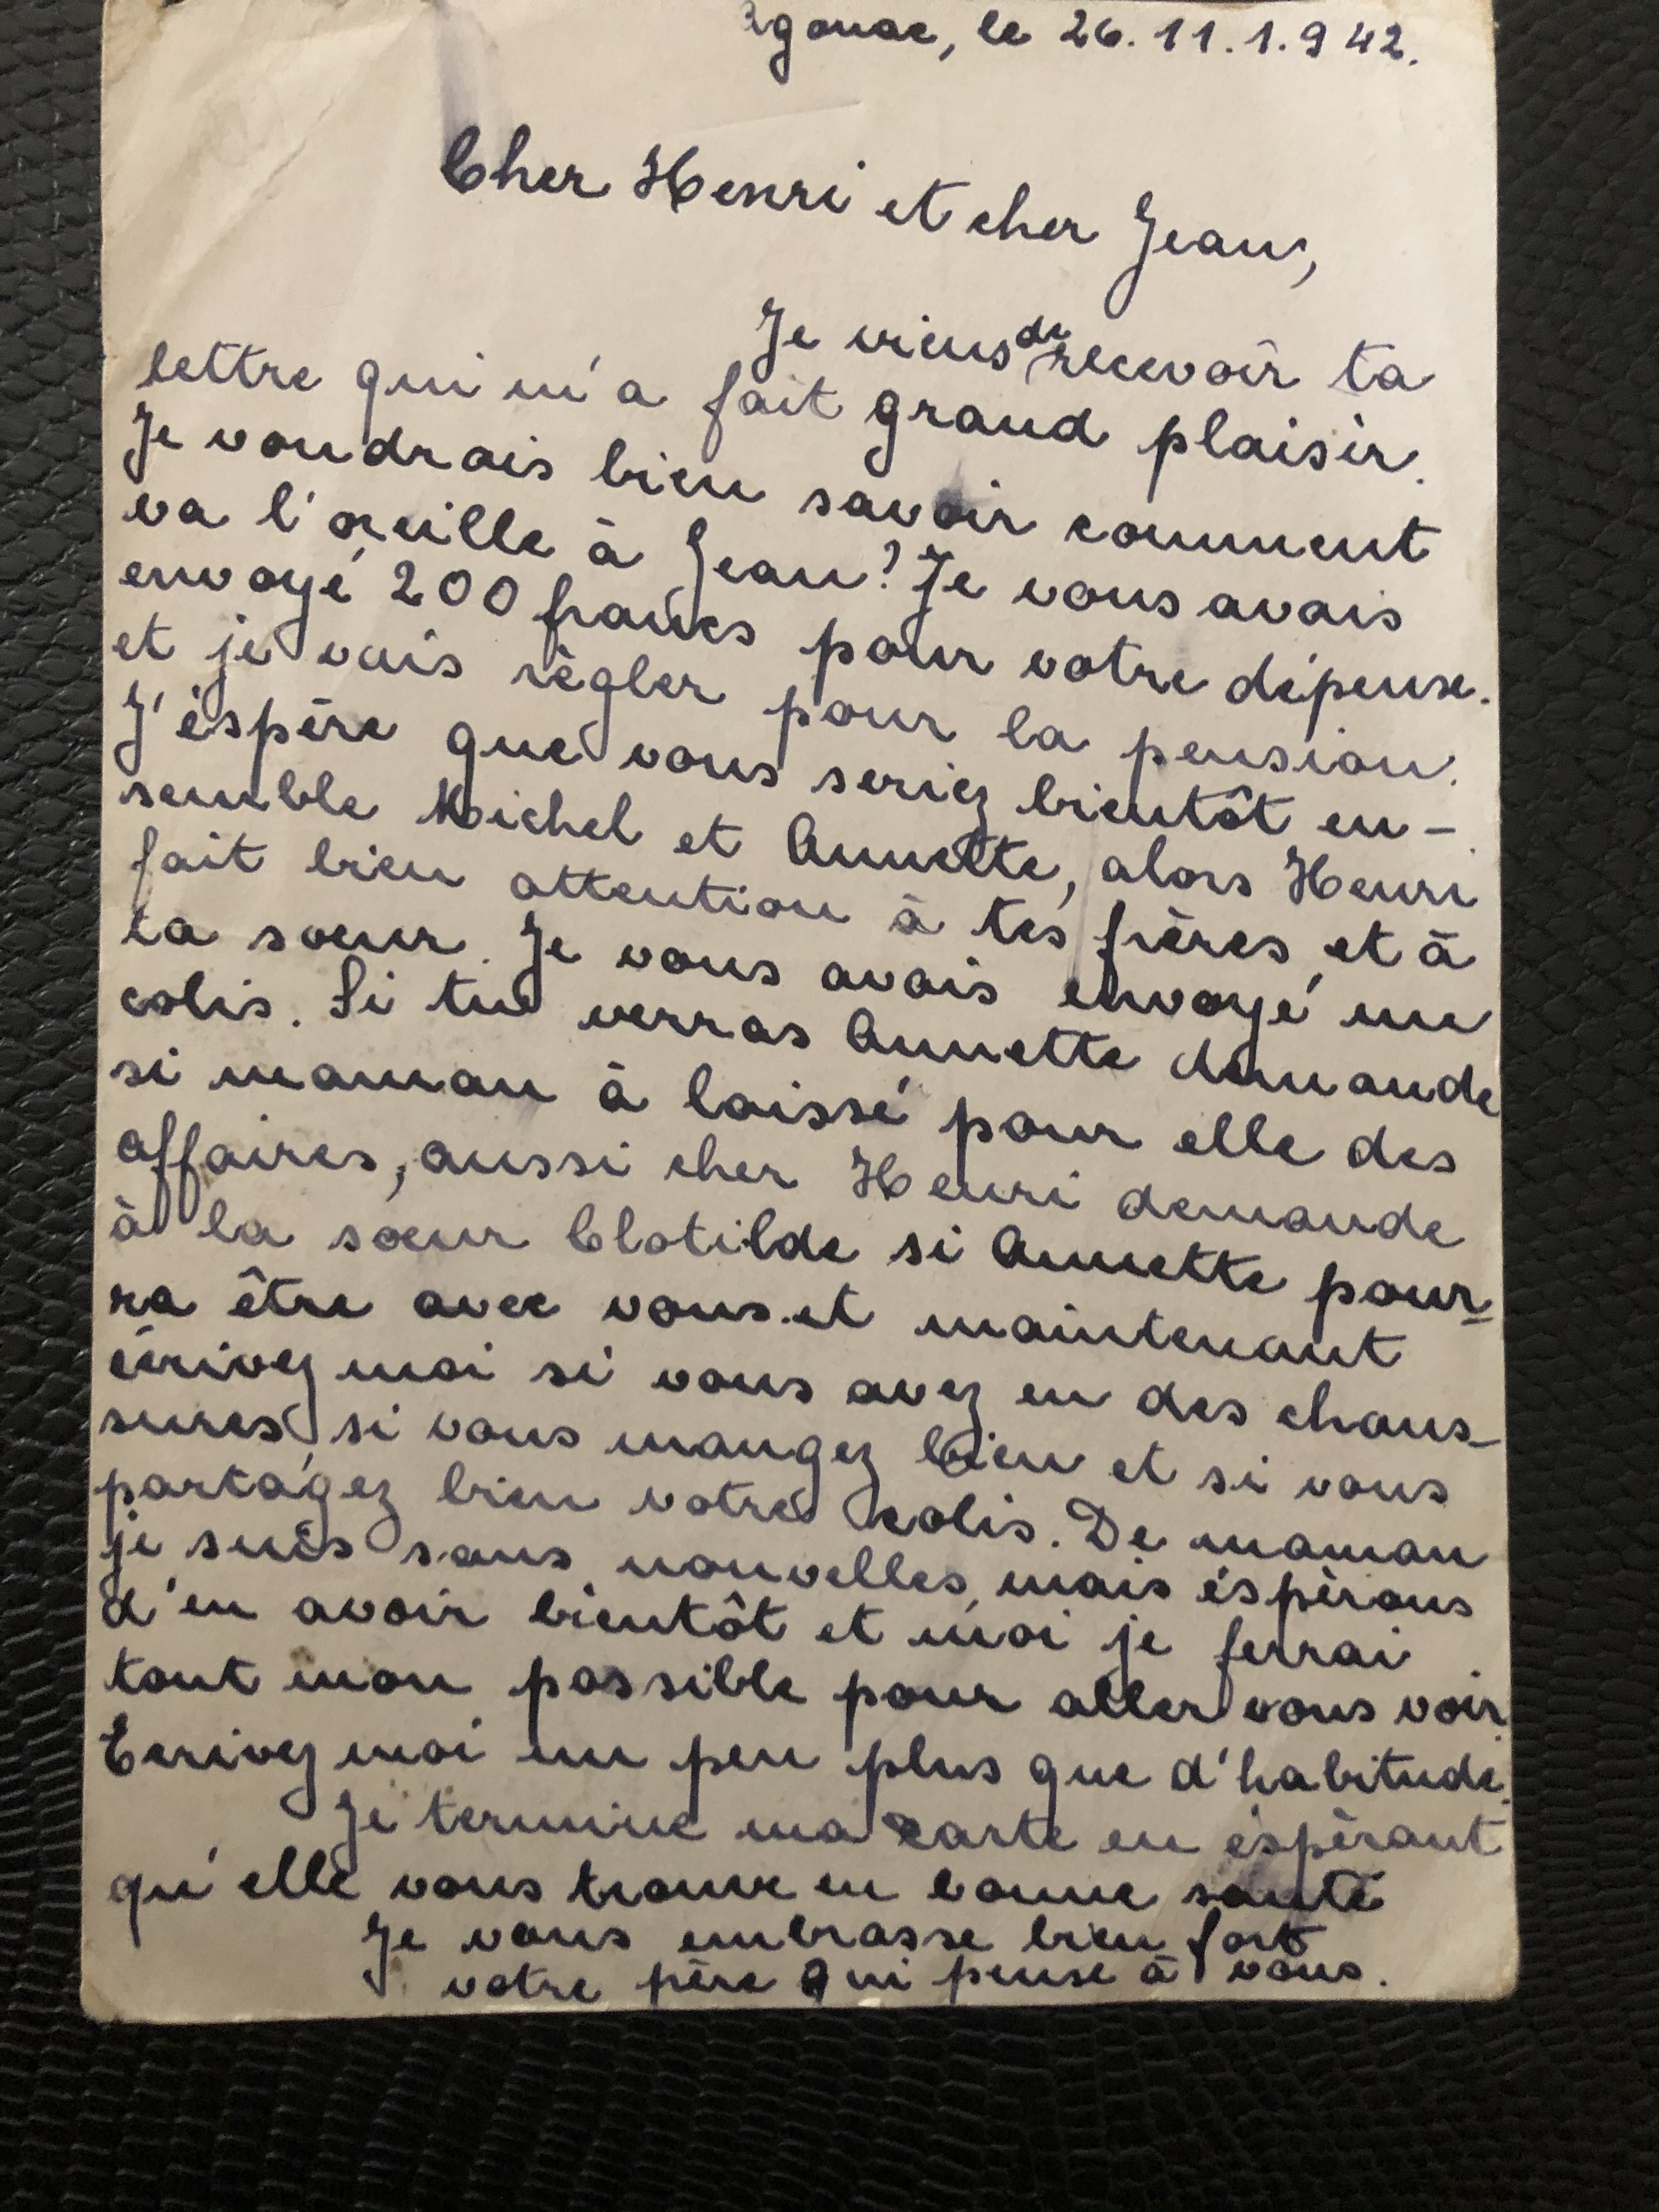 Agonac, le 26.11.1.942.
Cher Henri et cher Jean,
Je viens de recevoir ta
lettre qui m'a fait grand plaisir.
Je voudrais bien savoir comment
va l'oreille à Jean? Je vous avais
envoyé 200 francs pour votre dépense.
et je vais règler pour la pension.
J'éspère que vous seriez bientôt en-
semble Michel et Annette, alors Henri
fait bien attention à tes frères, et à
ta soeur. Je vous avais envoyé un
colis. Si tu verras Annette demande
si maman à laissé pour elle des
affaires, aussi cher Henri demande
à la soeur Clotilde si Annette pour-
ra être avec vous. et maintenant
écrivez moi si vous avez eu des chaus-
sures si vous mangez bien et si vous
partagez bien votre colis. De maman
je suis sans nouvelles, mais éspèrons
d'en avoir bientôt et moi je ferrai
tout mon possible pour aller vous voir.
Ecrivez moi un peu plus que d'habitude.
Je termine ma carte en éspèrant
qu'elle vous trouve en bonne santé
Je vous embrasse bien fort
votre père qui pense à vous.